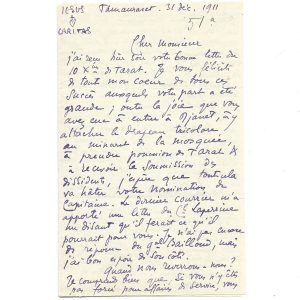 IESUS
CARITAS
Tamanrasset. 31 Déc. 1911
Cher Monsieur
j'ai reçu hier soir votre bonne lettre du
10 Xbre de Tarat. Je vous félicite
de tout mon coeur de tous ces
succès auxquels votre part a été
grande; toute la joie que vous
avez eue à entrer à Djanet, à y
attacher le drapeau tricolore,
au minaret de la mosquée,
à prendre possession de Tarat &
à recevoir la soumission des
dissidents, j'espère que tout cela
va hâter votre nomination de
Capitaine. Le dernier courrier m'a
apporté une lettre du Cel Laperrine
me disant qu'il ferait ce qu'il
pourrait pour vous; je n'ai pas encore
de réponse du gal Bailloud, mais
j'ai bon espoir de son côté.
Quand nous reverrons-nous?
Je comprends bien que si vous n'y êtes
pas forcé pour affaires de service, vous